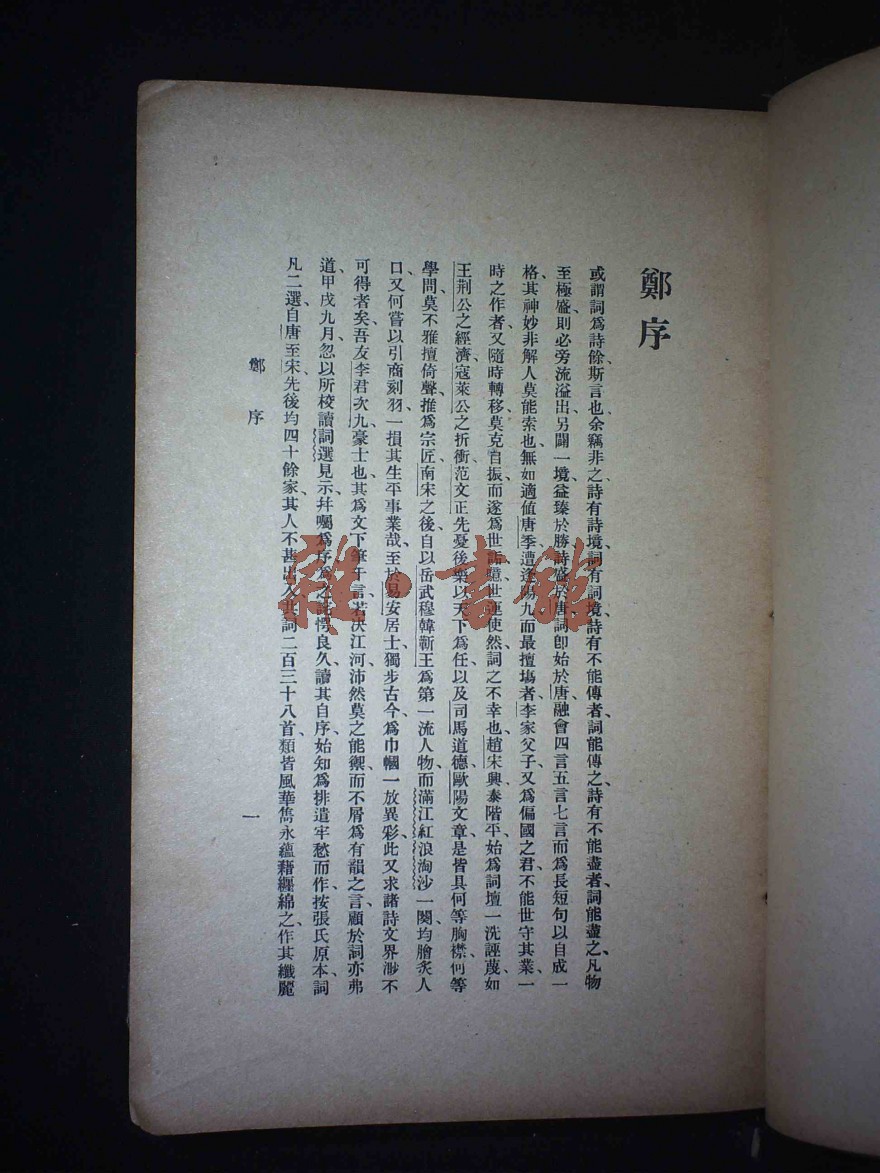 鄭序
或謂詞爲詩餘、斯言也、余竊非之、詩有詩境、詞有詞境、詩有不能傳者、詞能傳之、詩有不能盡者、詞能盡之、凡物
至極盛、則必旁流溢出、另闢一境、益臻於勝、詩盛於唐、詞卽始於唐、融會四言五言七言而爲長短句、以自成一
格、其神妙非解人莫能索也、無如適値唐季、遭逢陽九、而最擅塲者、李家父子、又爲偏國之君、不能世守其業、一
時之作者、又隨時轉移、莫克自振、而遂爲世詬、噫、世運使然、詞之不幸也、趙宋興、泰階平、始爲詞壇一洗誣蔑、如
王荆公之經濟、寇萊公之折衝、范文正先憂後樂、以天下爲任、以及司馬道德、歐陽文章、是皆具何等胸襟、何等
學問、莫不雅擅倚聲、推爲宗匠、南宋之後、自以岳武穆韓蘄王爲第一流人物、而滿江紅浪淘沙一闋、均膾炙人
口、又何嘗以引商刻羽、一損其生平事業哉、至於易安居士、獨步古今、爲巾幗一放異彩、此又求諸詩文界渺不
可得者矣、吾友李君次九、豪士也、其爲文下筆千言、若决江河、沛然莫之能禦、而不屑爲有韻之言、顧於詞亦弗
道、甲戌九月、忽以所校讀詞選見示、幷囑爲序、爲之詫愕良久、讀其自序、始知爲排遣牢愁而作、按張氏原本、詞
凡二選、自唐至宋、先後均四十餘家、其人不甚出入、共詞二百三十八首、類皆風華雋永、蘊藉纒綿之作、其纖麗
鄭序
一
雜·書館